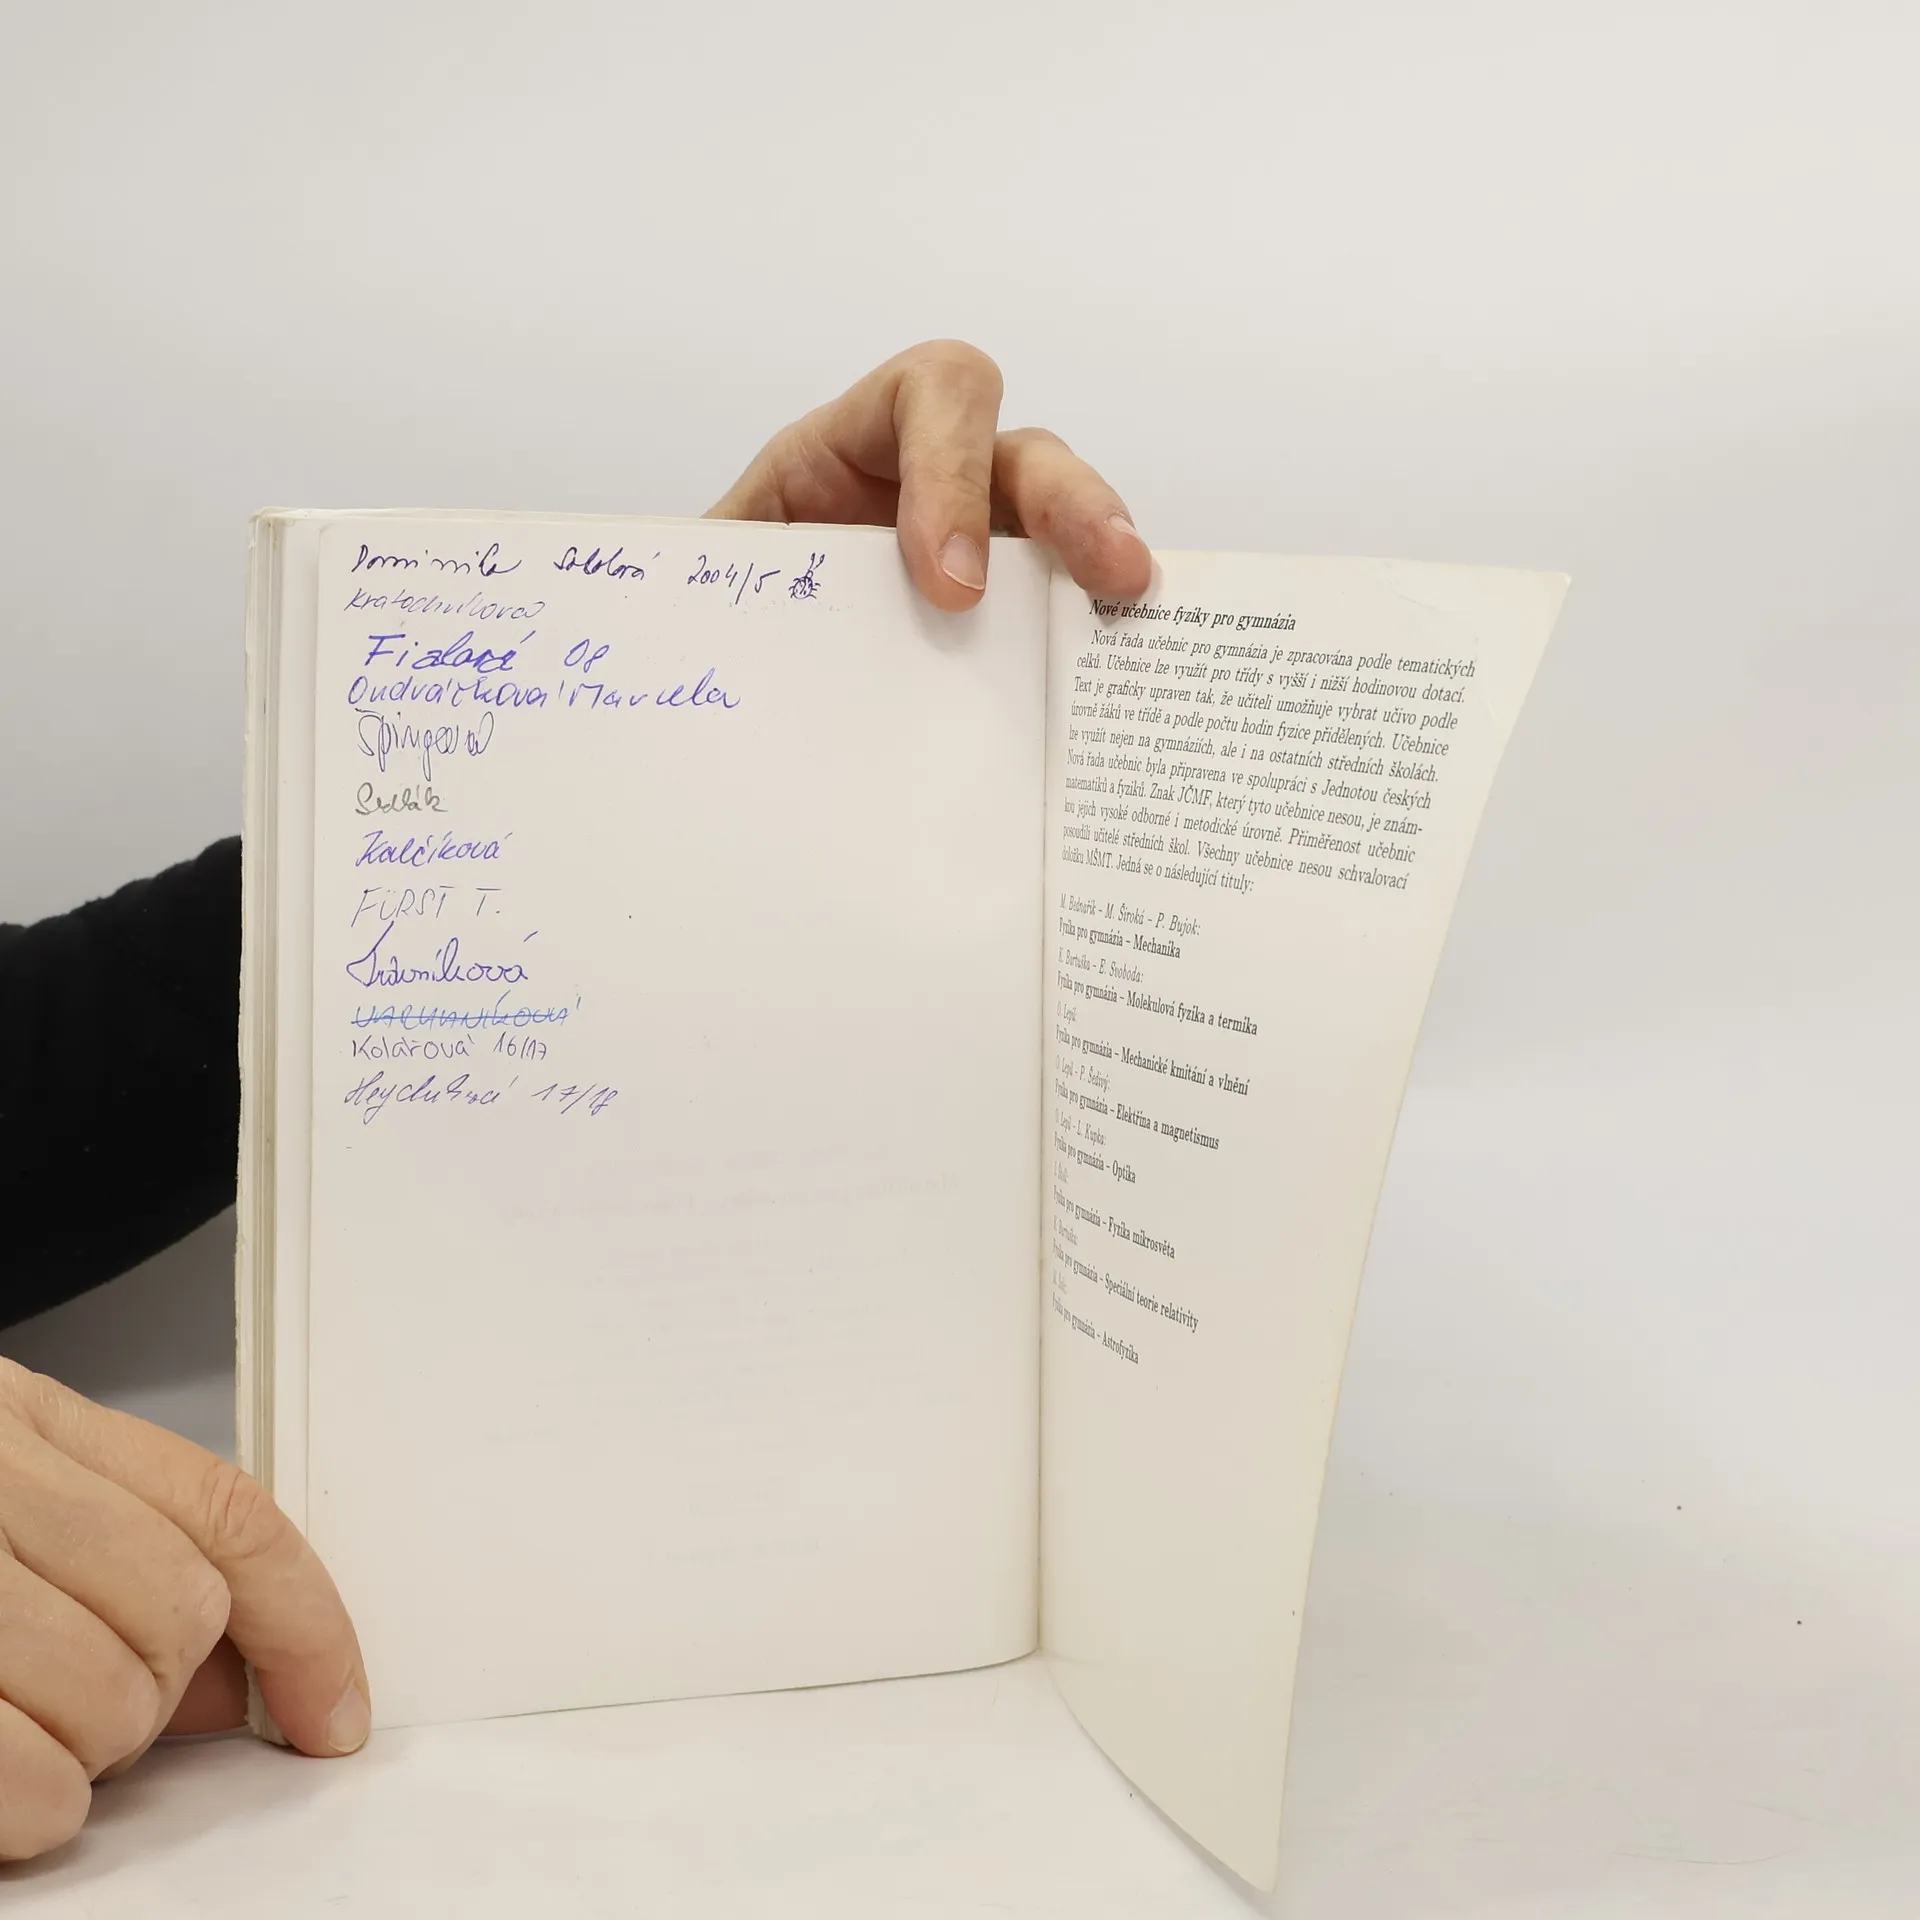 Dominika Sokolová 2004/5
Kratochvílová
Fialová 08
Ondráčková Marcela
Špinglová
Sedlák
Kalčíková
FÜRST T.
Trávníková
Kolářová 16/17
17/18
Nové učebnice fyziky pro gymnázia
Nová řada učebnic pro gymnázia je zpracována podle tematických
celků. Učebnice lze využít pro třídy s vyšší i nižší hodinovou dotací.
Text je graficky upraven tak, že učiteli umožňuje vybrat učivo podle
úrovně žáků ve třídě a podle počtu hodin fyzice přidělených. Učebnice
lze využít nejen na gymnáziích, ale i na ostatních středních školách.
Nová řada učebnic byla připravena ve spolupráci s Jednotou českých
matematiků a fyziků. Znak JČMF, který tyto učebnice nesou, je znám-
kou jejich vysoké odborné i metodické úrovně. Přiměřenost učebnic
posoudili učitelé středních škol. Všechny učebnice nesou schvalovací
doložku MŠMT. Jedná se o následující tituly:
M. Bednařík – M. Široká – P. Bujok:
Fyzika pro gymnázia – Mechanika
K. Bartuška – E. Svoboda:
Fyzika pro gymnázia – Molekulová fyzika a termika
O. Lepil:
Fyzika pro gymnázia – Mechanické kmitání a vlnění
O. Lepil – P. Šedivý:
Fyzika pro gymnázia – Elektřina a magnetismus
O. Lepil – Z. Kupka:
Fyzika pro gymnázia – Optika
I. Štoll:
Fyzika pro gymnázia – Fyzika mikrosvěta
K. Bartuška:
Fyzika pro gymnázia – Speciální teorie relativity
Fyzika pro gymnázia – Astrofyzika